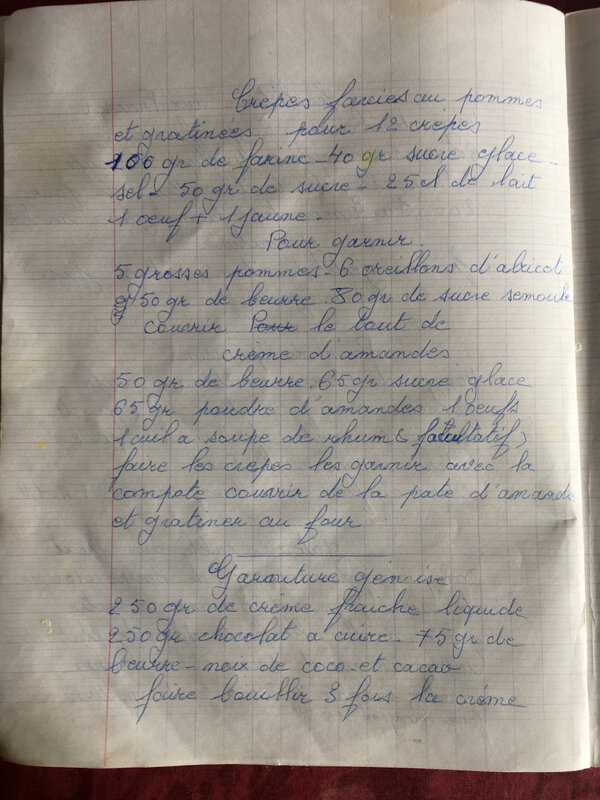 Crêpes farcies au pommes
et gratinées pour 12 crepes
100 gr de farine - 40 gr sucre glace -
sel - 50 gr de sucre - 25 l de lait
1 oeuf + 1 jaune -
Pour garnir
5 grosses pommes - 6 oreillons d'abricot
50 gr de beurre 30 gr de sucre semoule
couvrir Pour le tout de
crème d'amandes
50 gr de beurre. 65 gr sucre glace
65 gr poudre d'amandes 1 oeufs
1 cuil a soupe de rhum ( facultatif )
faire les crepes les garnir avec la
compote couvrir de la pate d'amande
et gratiner au four
Garniture génoise
250 gr de crème fraiche liquide
250 gr chocolat a cuire - 75 gr de
beurre - noix de coco et cacao
faire bouillir 3 fois la crème